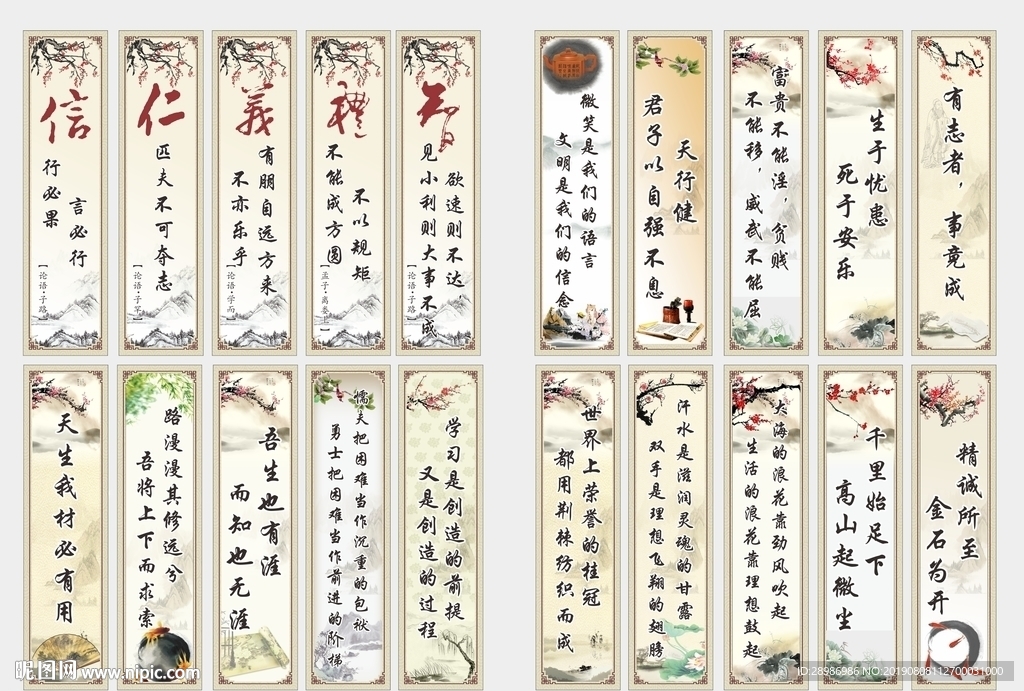 信
言必行
行必果
【论语·子路】
仁
匹夫不可夺志
【论语·子罕】
義
有朋自远方来
不亦乐乎
【论语·学而】
禮
不以规矩
不能成方圆
【孟子·离娄上】
智
欲速则不达，
见小利则大事不成
【论语·子路】
微笑是我们的语言
文明是我们的信念
天行健
君子以自强不息
富贵不能淫，贫贱
不能移，威武不能屈
生于忧患
死于安乐
有志者，事竟成
天生我材必有用
路漫漫其修远兮
吾将上下而求索
吾生也有涯
而知也无涯
懦夫把困难当作沉重的包袱
勇士把困难当作前进的阶梯
学习是创造的前提
又是创造的过程
世界上荣誉的桂冠
都用荆棘纺织而成
汗水是滋润灵魂的甘露
双手是理想飞翔的翅膀
大海的浪花靠劲风吹起
生活的浪花靠理想鼓起
千里始足下
高山起微尘
精诚所至
金石为开
昵图网 www.nipic.com
ID:28986986 NO:20190808112700031000